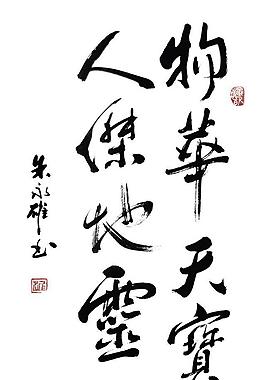 物華天寶
人傑地靈
朱永雄书